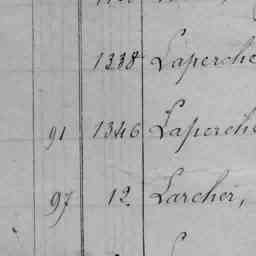 1338 Laperche
91 1346 Laperche
97 12 Larcher,